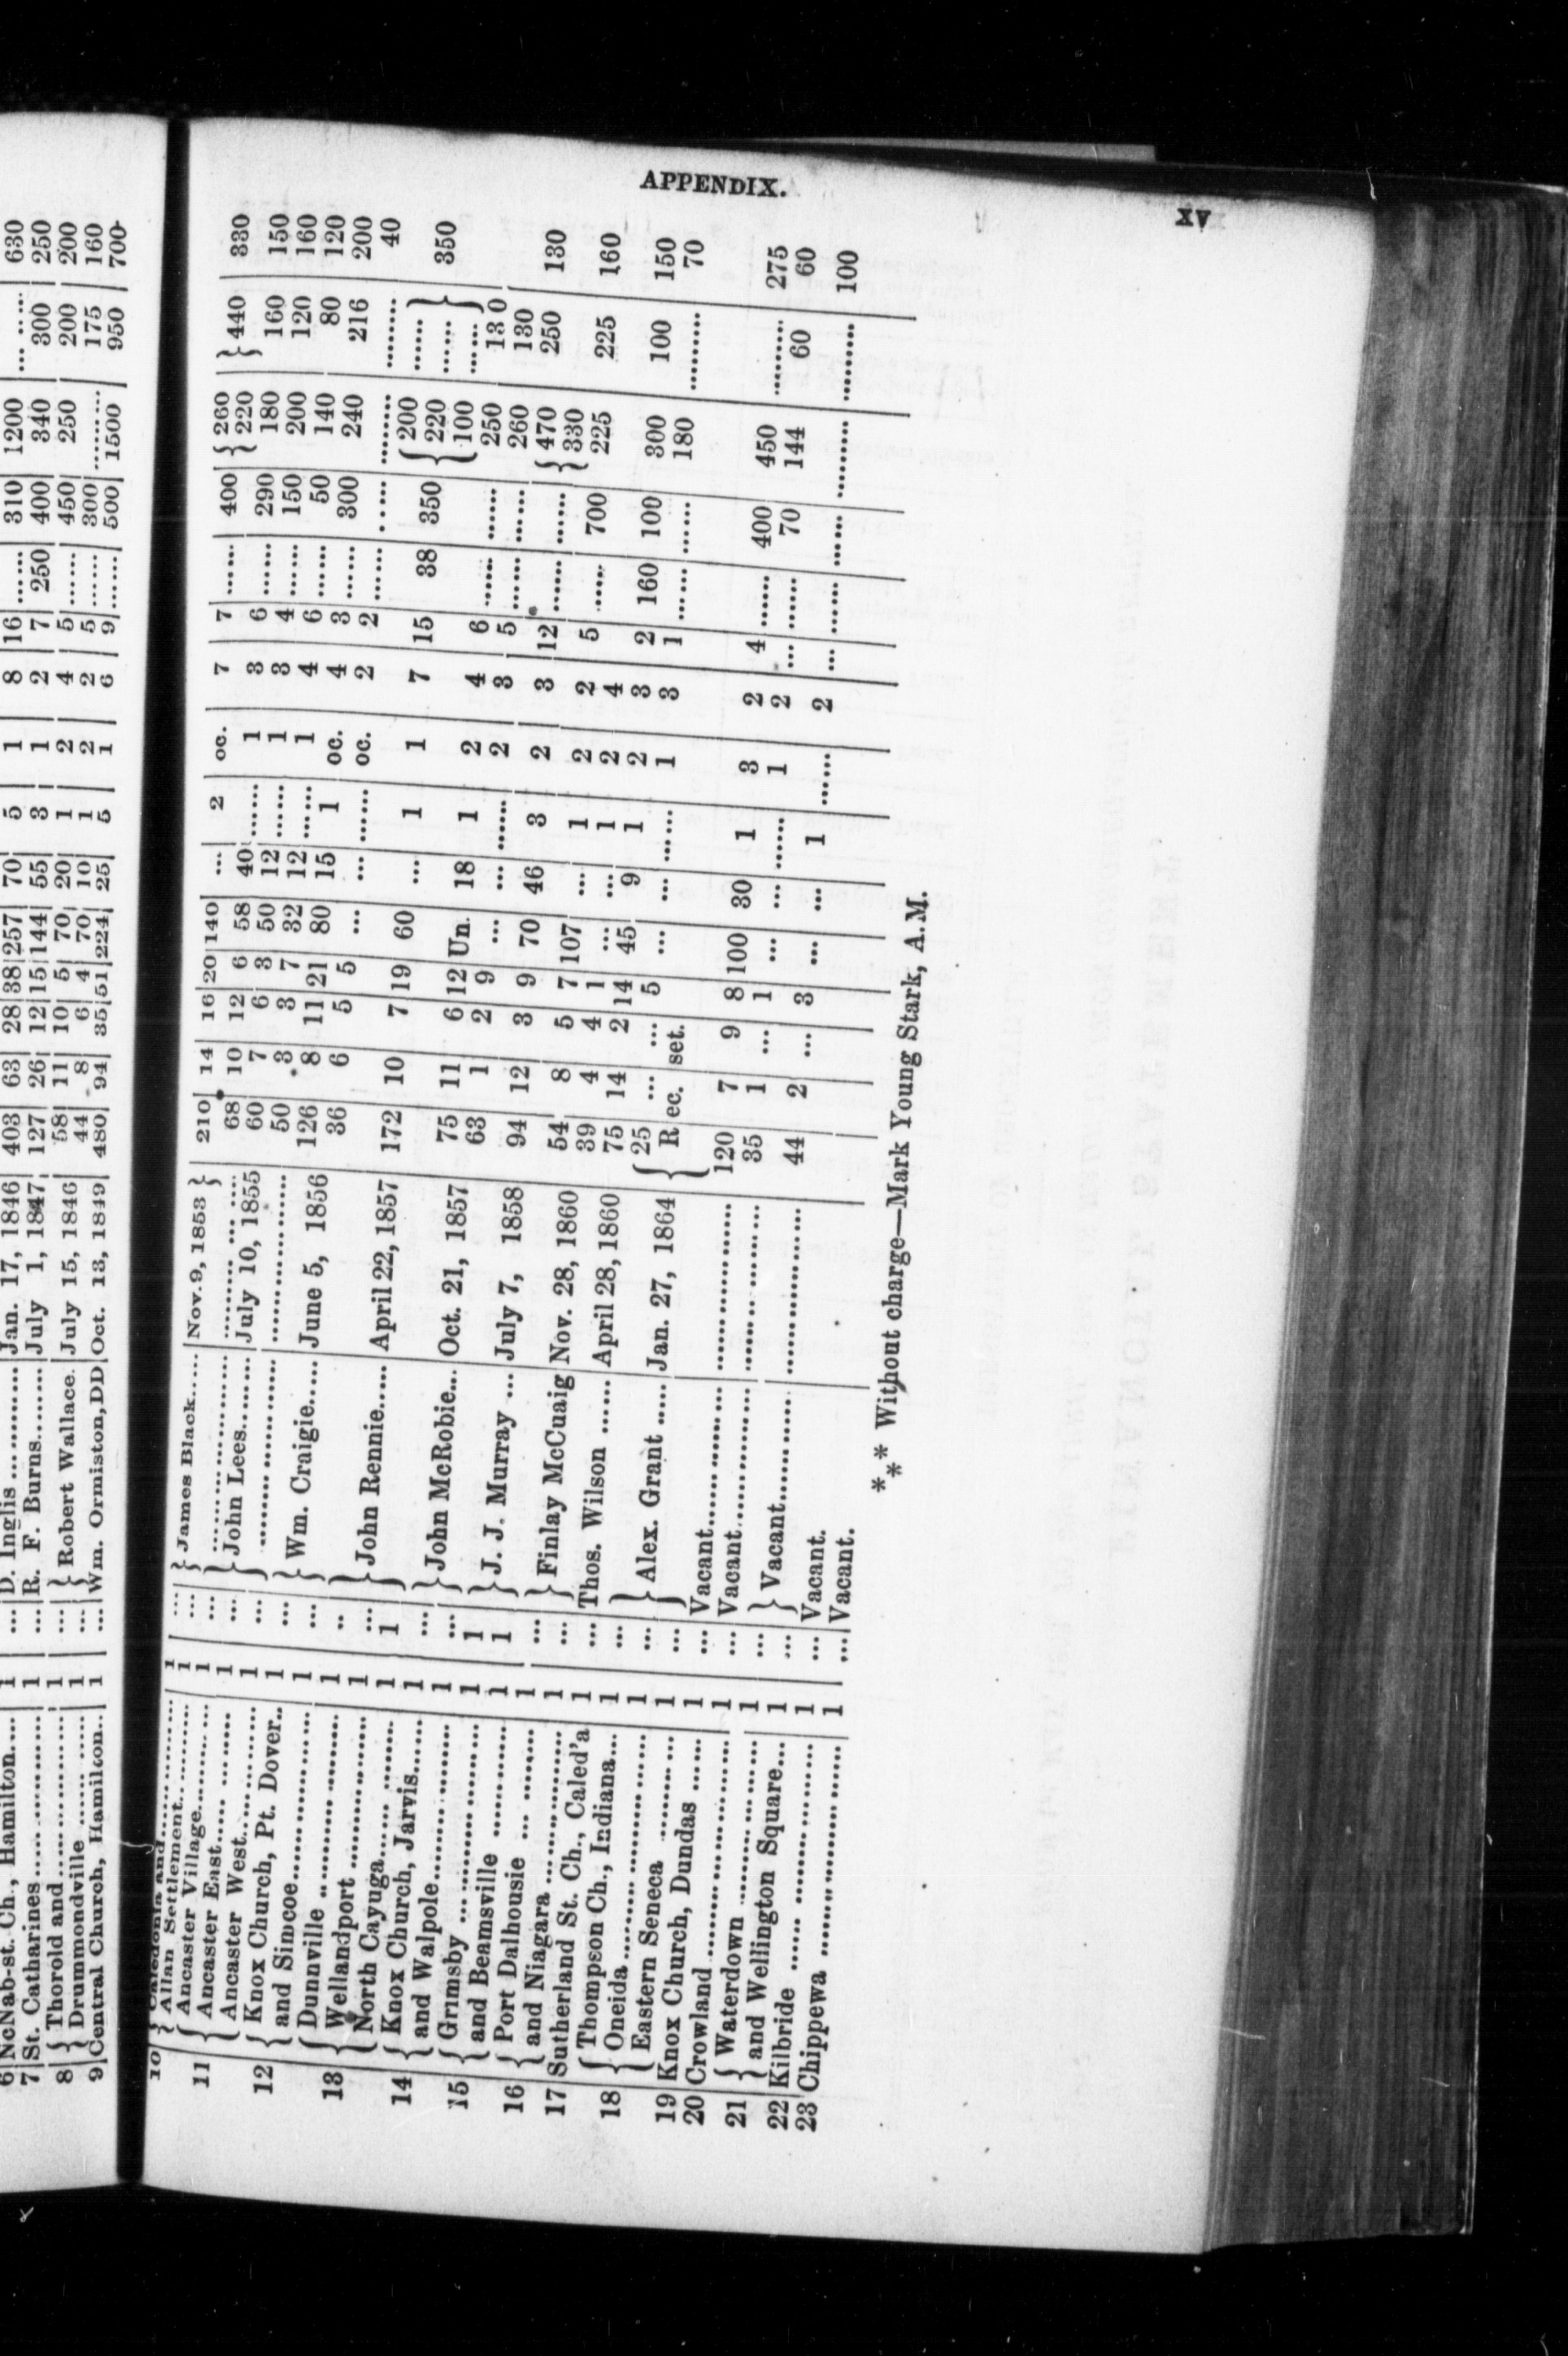 APPENDIX.
XV
6 McNab-st. Ch., Hamilton.... 1 ... D. Inglis ........... Jan. 17, 1846 403 63 28 38 257 70 5 1 8 16 ...... 310 1200 ... .... 630
7 St. Catharines .................. 1 ... R. F. Burns......... July 1, 1847 127 26 12 15 144 55 3 1 2 7 250 400 340 300 250
8 { Thorold and ................. 1 ... } Robert Wallace. July 15, 1846 58 11 10 5 70 20 1 2 4 5 ...... 450 250 200 200
{ Drummondville ............. 1 ... } 44 8 6 4 70 10 1 2 2 5 ...... 300 ......... 175 160
9 Central Church, Hamilton.. 1 ... Wm. Ormiston, DD Oct. 13, 1849 480 94 35 51 224 25 5 1 6 9 ...... 500 1500 950 700
10 { Caledonia and ............... 1 ... } James Black..... Nov. 9, 1853 } 210 14 16 20 140 ... 2 oc. 7 7 ...... 400 { 260 } 440 330
{ Allan Settlement............ 1 ... 220
11 { Ancaster Village............. 1 ...
{ Ancaster East................ 1 ... } John Lees......... July 10, 1855 68 10 12 6 58 40 ...... 1 3 6 ...... 290 180 160 150
{ Ancaster West................ 1 ... 60 7 6 3 50 12 ...... 1 3 4 ...... 150 200 120 160
12 { Knox Church, Pt. Dover.. 1 ... } Wm. Craigie..... June 5, 1856 50 3 3 7 32 12 ...... 1 4 6 ...... 50 140 80 120
{ and Simcoe.................... 1 ... 126 8 11 21 80 15 1 oc. 4 3 ...... 300 240 216 200
13 { Dunnville ..................... 1 ... } John Rennie...... April 22, 1857 36 6 5 5 ... ... ...... oc. 2 2 ...... ..... ......... ......... 40
{ Wellandport .................. 1 ..
{ North Cayuga................. 1 ... 172 10 7 19 60 ... 1 1 7 15 38 350 { 200 ...... } 350
14 { Knox Church, Jarvis........ 1 1 } John McRobie... Oct. 21, 1857 220 ......
{ and Walpole................... 1 ... 100 ......
15 { Grimsby ....................... 1 ... } J. J. Murray ... July 7, 1858 75 11 6 12 Un. 18 1 2 4 6 ...... ...... 250 13 0
{ and Beamsville ............... 1 1 63 1 2 9 ... ... ...... 2 3 5 ...... ...... 260 130
16 { Port Dalhousie .............. 1 1 } Finlay McCuaig Nov. 28, 1860 94 12 3 9 70 46 3 2 3 12 ...... ...... { 470 250 130
{ and Niagara ................... 1 ... 330
17 Sutherland St. Ch., Caled'a 1 ... Thos. Wilson ...... April 28, 1860 54 8 5 7 107 ... 1 2 2 5 ...... 700 225 225 160
18 { Thompson Ch., Indiana... 1 ... } Alex. Grant ..... Jan. 27, 1864 39 4 4 1 ... ... 1 2 4
{ Oneida.......................... 1 ... 75 14 2 14 45 9 1 2 3 2 160 100 300 100 150
{ Eastern Seneca ............... 1 ... { 25 ... ... 5 ... ... ...... 1 3 1 ...... ...... 180 ......... 70
19 Knox Church, Dundas ...... 1 ... Vacant.................. ................... R ec. set.
20 Crowland ....................... 1 ... Vacant.................. ................... 120 7 9 8 100 30 1 3 2 4 ...... 400 450 ......... 275
21 { Waterdown .................... 1 ... } Vacant............. ................... 35 1 ... 1 ... ... ...... 1 2 ... ...... 70 144 60 60
{ and Wellington Square.... 1 ... 44 2 ... 3 ... ... 1 ...... 2 ... ...... ...... ......... ......... 100
22 Kilbride ........................ 1 ... Vacant.
23 Chippewa ...................... 1 ... Vacant.
*** Without charge—Mark Young Stark, A.M.